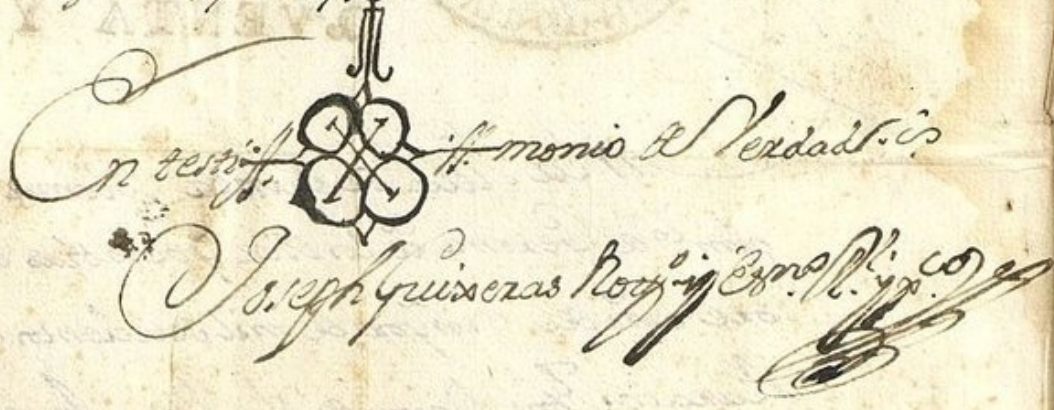 En testi monio de Verdad
Joseph Guixeras Nott.º y Esno. Rl. y pco